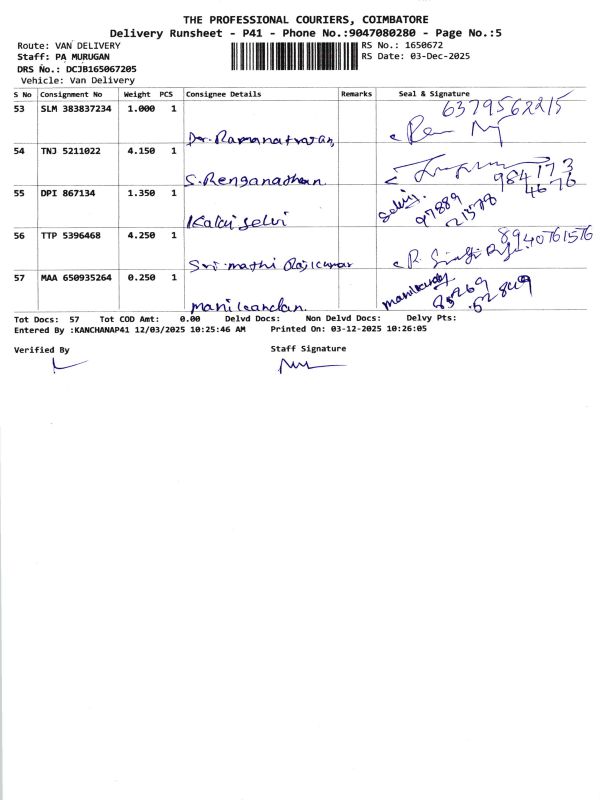 THE PROFESSIONAL COURIERS, COIMBATORE
Delivery Runsheet - P41 - Phone No.:9047080280 - Page No.:5
Route: VAN DELIVERY RS No.: 1650672
Staff: PA MURUGAN RS Date: 03-Dec-2025
DRS No.: DCJB165067205
Vehicle: Van Delivery
S No Consignment No Weight PCS Consignee Details Remarks Seal & Signature
53 SLM 383837234 1.000 1 6379562215
Dr. Ramanatharan,
54 TNJ 5211022 4.150 1 984173
S. Renganathan 4676
55 DPI 867134 1.350 1 Selvi. 97889
Kalai selvi 21378
56 TTP 5396468 4.250 1 8940761576
Sri mathi Rajkumar
57 MAA 650935264 0.250 1
manikandan.
Tot Docs: 57 Tot COD Amt: 0.00 Delvd Docs: Non Delvd Docs: Delvy Pts:
Entered By :KANCHANAP41 12/03/2025 10:25:46 AM Printed On: 03-12-2025 10:26:05
Verified By Staff Signature